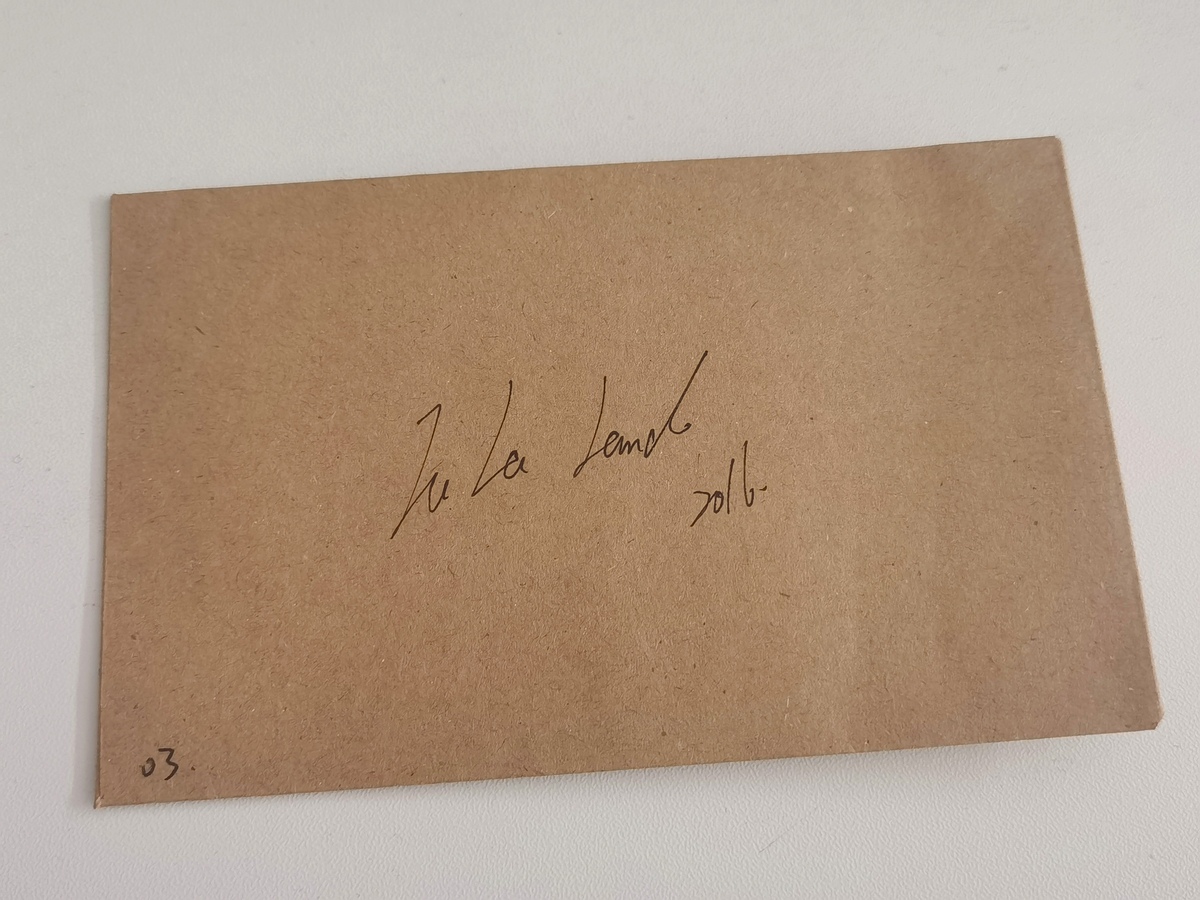 La La Land
2016.
03.